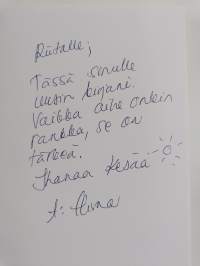 Riitalle;
Tässä sinulle
uusin kirjani.
Vaikka aihe onkin
rankka, se on
tärkeä.
Ihanaa kesää
t: